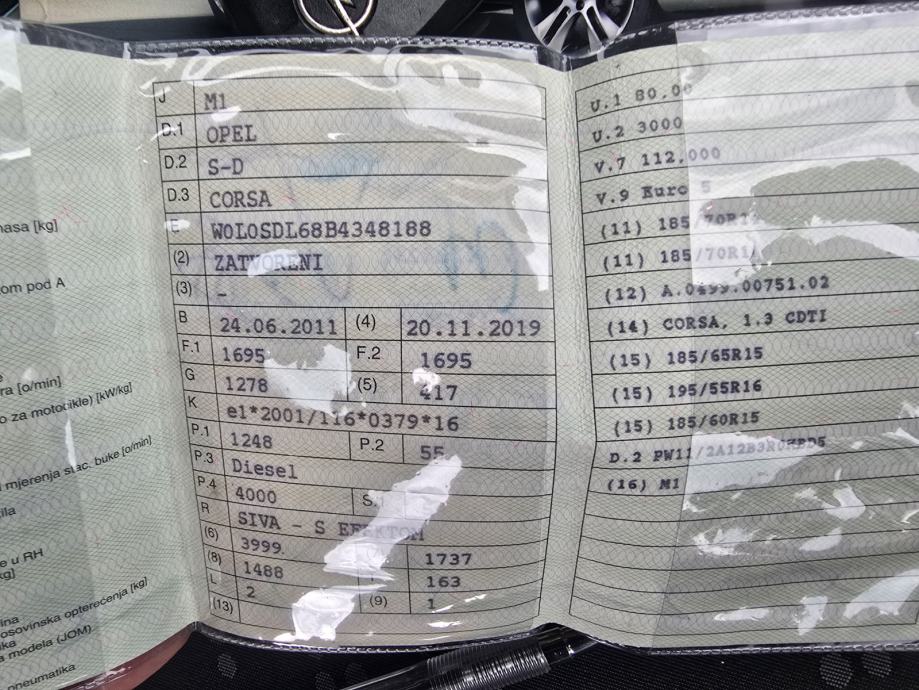 nasa [kg]
om pod A
ra [o/min]
o za motocikle) [kW/kg]
mjerenja stac. buke [o/min]
e u RH
kg]
osovinska opterećenja [kg]
a modela (JOM)
pneumatika
J M1
D.1 OPEL
D.2 S-D
D.3 CORSA
E W0L0SDL68B4348188
(2) ZATVORENI
(3) –
B 24.06.2011 (4) 20.11.2019
F.1 1695 F.2 1695
G 1278 (5) 417
K e1*2001/116*0379*16
P.1 1248 P.2 55
P.3 Diesel
P.4 4000 S.
R SIVA – S EFEKTOM
(6) 3999 1737
(8) 1488 163
L 2 (9) 1
(13)
U.1 80.00
U.2 3000
V.7 112,000
V.9 Euro 5
(11) 185/70R
(11) 185/70R
(12) A.0499.00751.02
(14) CORSA, 1.3 CDTI
(15) 185/65R15
(15) 195/55R16
(15) 185/60R15
D.2
(16) M1